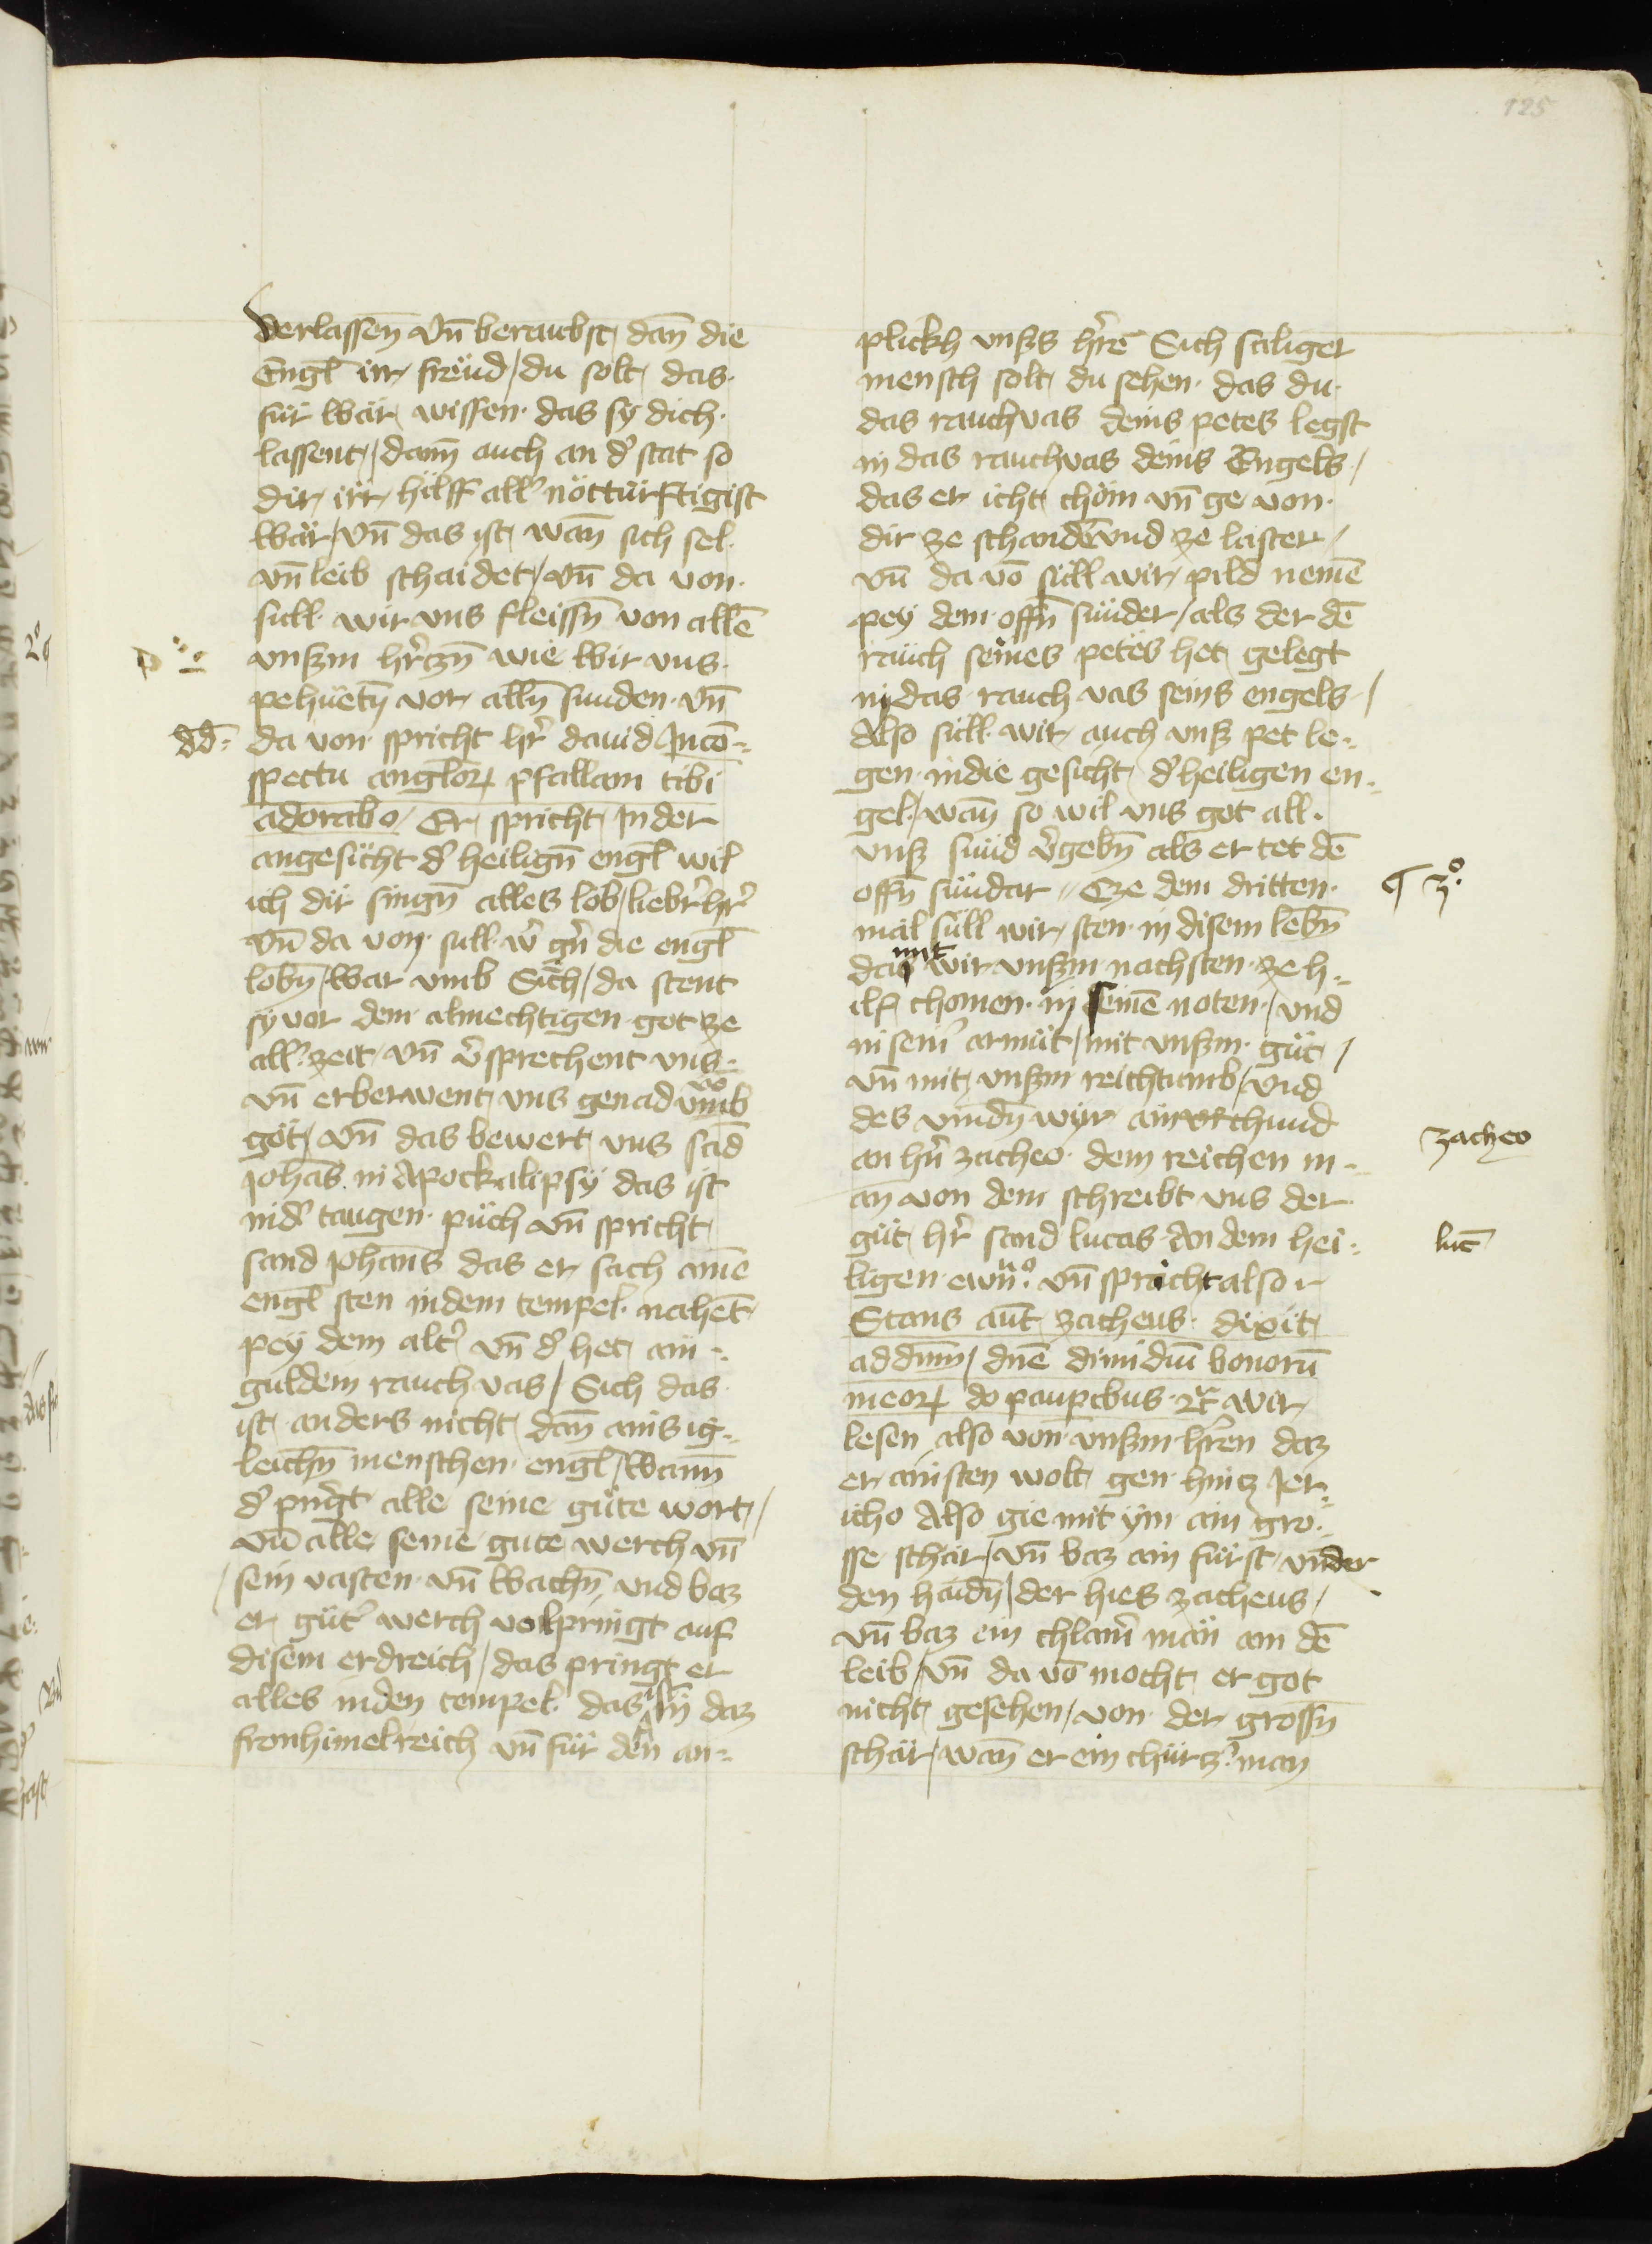 125
verlassen̄ vn̄ beraubst dan̄ die
Engl̄ irr frëud / du solt das
für bär wissen · das sy dich ·
lassent / dann̄ auch an dˀ stat so
dir irr hilff allˀ nötturftigist
bär / vn̄ das ist / wan̄ sich sel
vn̄ leib schaidet / vn̄ da von ·
süll wir uns fleissn̄ von allē
unsßm hˀrczn̄ wie wir uns ·
pehuetn̄ vor alln̄ sunden · vn̄
dd̄ :
da von spricht hˀr dauid Incō=
spectu angloꝝ psallam tibi
adorabo / Er spricht In der
angesicht dˀ heilign̄ engl̄ wil
ich dir singn̄ alles lob / liebˀ hˀr
vn̄ da von sull wˀ gˀn die engl̄
lobn̄ / war umb Sich / da stent
sy vor dem almechtigen got ze
allˀ zeit vn̄ vˀsprechent uns ·
vn̄ erberwent uns genad umb
got / vn̄ das bewert uns sād
Johās in Apockalipsy das ist
in dˀ taugen · puch vn̄ spricht
sand Johan̄s das er sach ainē
engl̄ sten in dem tempel · nahēt
pey dem altˀ vn̄ dˀ het ain ·
guldem rauch vas / Sich das
ist anders nicht dan̄ ains ig=
leichn̄ menschen · engl̄ / wann̄
dˀ pringt alle seine güte wort /
vn̄ alle seine gute werch vn̄
sein vasten · vn̄ wachn̄ und baz
er gütˀ werch volpringt auf
disem erdreich / das pringt er
alles in den tempel · das ist in daz
fronhimelreich vn̄ für den an=
plickh unsßs hˀrē Sich saliger
mensch solt du sehen · das du ·
das rauchvas deins petes legst
in das rauchvas deins Engels /
das er icht chöm vn̄ ge von ·
dir ze schandē und ze laster /
vn̄ da vō süll wir pild nemē
pey dem offn̄ sünder / als der dē
rauch seines petes het gelegt
in das rauch vas seins engels /
Also süll wir auch unsß pet le=
gen in die gesicht dˀ heiligen en=
gel / wan̄ so wil uns got all ·
unsß sünd vˀgebn̄ als er tet dē
offn̄ sündar // Cze dem dritten ·
¶ 3º.
mal süll wir sten · in disem lebn̄
da mit wir unsßm nachsten · ze h=
ilf chomen · in seinē noten / und
in seinˀ armüt / mit unsßm · güt /
vn̄ mit unsßm reichtumb / und
des vindn̄ wir ain urchund
zacheo
an hˀn zacheo · dem reichen m=
an von dem schreibt uns der
güt hˀr sand lucas An dem hei=
luc̄
ligen ewn̄º · vn̄ spricht also
Stans aut̄ zacheus · dixit
ad dn̄m / dn̄e dimidiū bonorū
meoꝝ do paupibus · ꝛc̄ wir
lesen also von unsßm hˀren daz
er ainsten wolt gen hincz Jer=
icho Also gie mit ym ain gro=
sse schar / vn̄ baz ain fürst under
den haidn̄ / der hies zacheus /
vn̄ baz ein chlainˀ man an dē
leib / vn̄ da vō mocht er got
nicht gesehen / von der grossn̄
schar / wan̄ er ein chürczˀ man